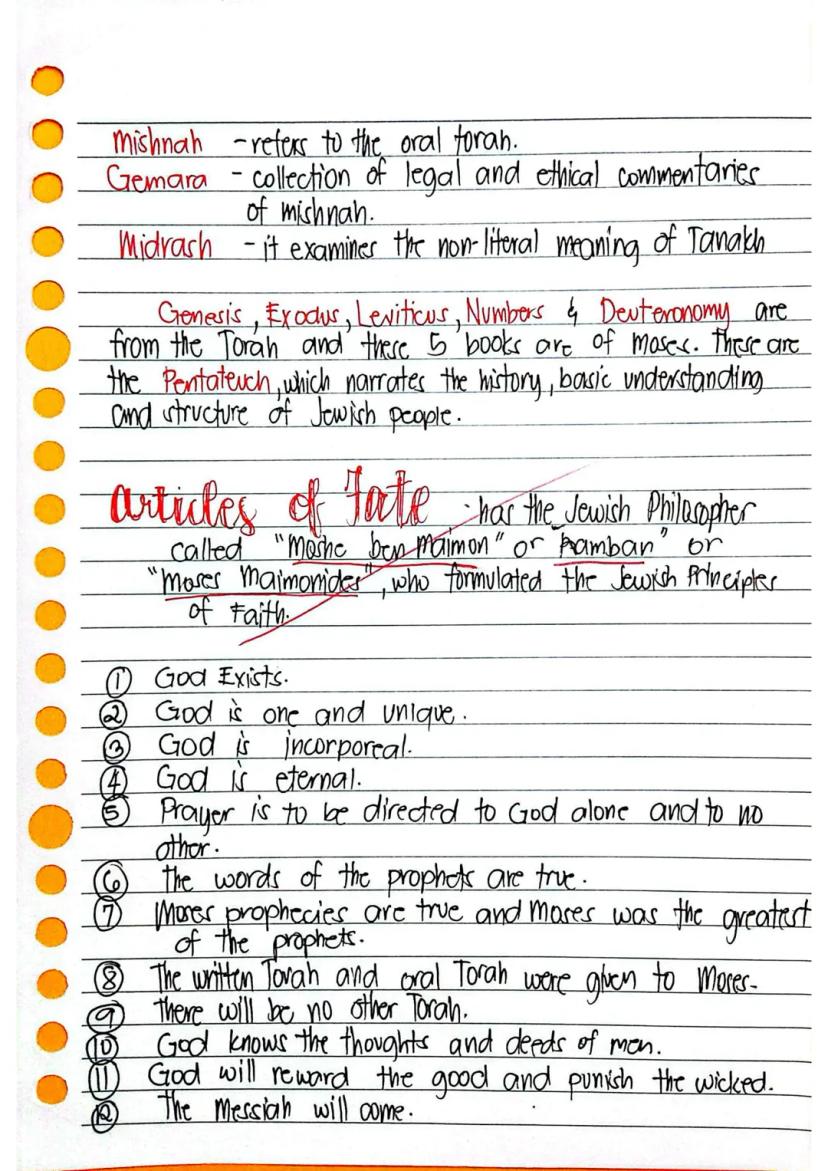 Mishnah - refers to the oral torah.
Gemara - collection of legal and ethical commentaries
of mishnah.
Midrash - it examines the non-literal meaning of Tanakh
Genesis, Exodus, Leviticus, Numbers & Deuteronomy are
from the Torah and these 5 books are of Moses. These are
the Pentateuch, which narrates the history, basic understanding
and structure of Jewish people.
Articles of Fate - has the Jewish Philosopher
called "Moshe ben Maimon" or Ramban" or
"Moses Maimonides", who formulated the Jewish Principles
of Faith.
① God Exists.
② God is one and unique.
③ God is incorporeal.
④ God is eternal.
⑤ Prayer is to be directed to God alone and to no
other.
⑥ The words of the prophets are true.
⑦ Moses prophecies are true and Moses was the greatest
of the prophets.
⑧ The written Torah and oral Torah were given to Moses.
⑨ There will be no other Torah.
⑩ God knows the thoughts and deeds of men.
⑪ God will reward the good and punish the wicked.
⑫ The Messiah will come.